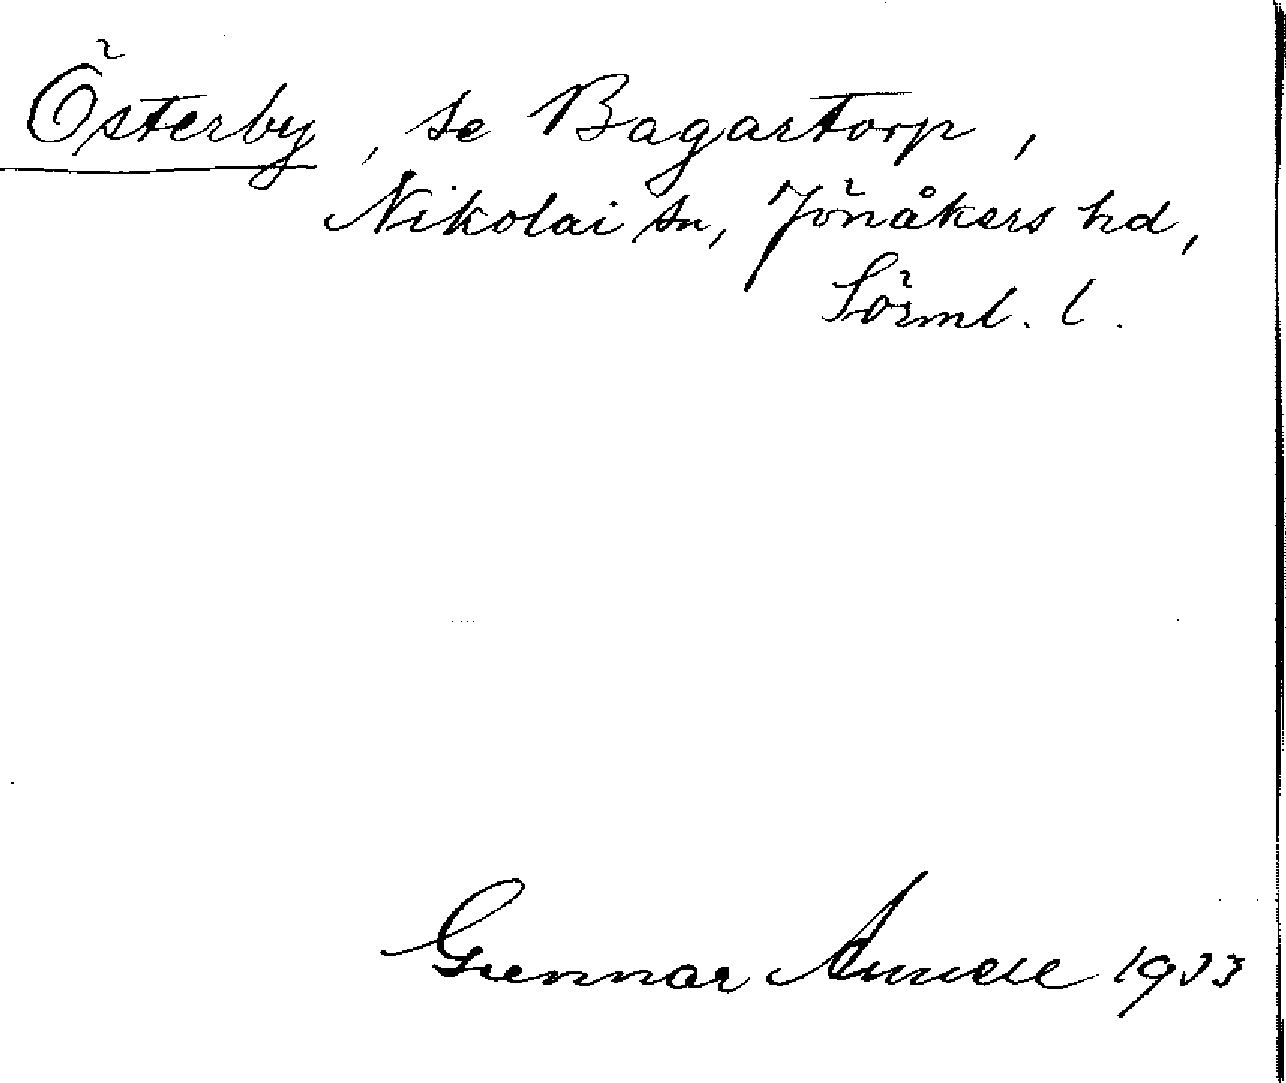 Österby, se Bagartorp,
Nikolai sn, Jönåkers hd,
Sörml. l.
Gunnar 1933